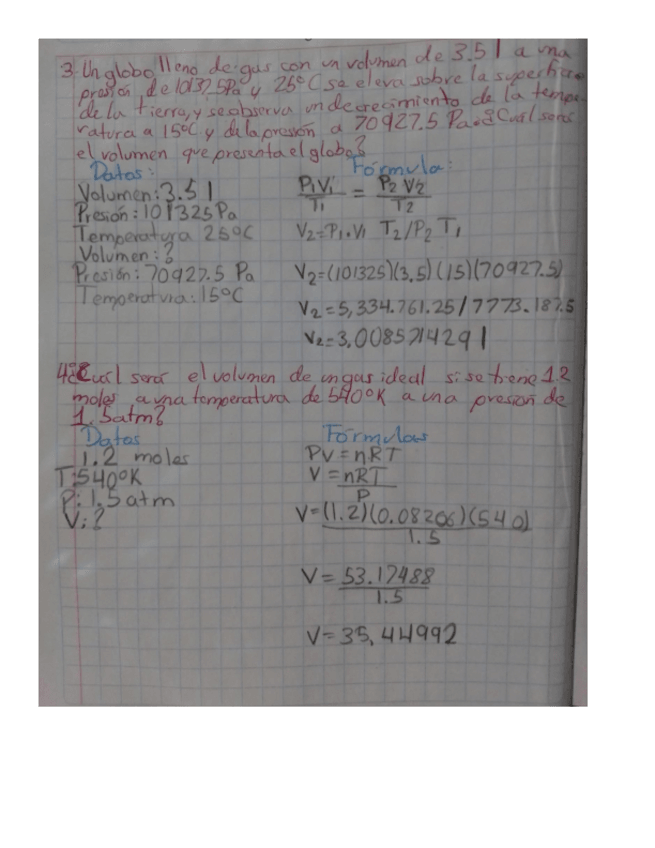 3 Un globo lleno de gas con un volumen de 3.5 l a una
presión de 101325Pa y 25°C se eleva sobre la superficie
de la tierra, y se observa un decrecimiento de la tempe-
ratura a 15°C y de la presión a 70927.5 Pa ¿Cuál será
el volumen que presenta el globo?
Datos: Fórmula:
Volumen: 3.5 l P1V1 / T1 = P2 V2 / T2
Presión: 101325 Pa
Temperatura 25°C V2=P1.V1 T2/P2 T1
Volumen: ?
Presión: 70927.5 Pa V2=(101325)(3.5)(15)(70927.5)
Temperatura: 15°C
V2=5,334.761.25/7773.187.5
V2=3,0085714291
4 ¿Cuál será el volumen de un gas ideal si se tiene 1.2
moles a una temperatura de 540°K a una presión de
1.5atm?
Datos Fórmulas
1.2 moles PV=nRT
T:540°K V=nRT
P
P: 1.5 atm V=(1.2)(0.08206)(540)
1.5
V: ?
V=53.17488
1.5
V=35,44992